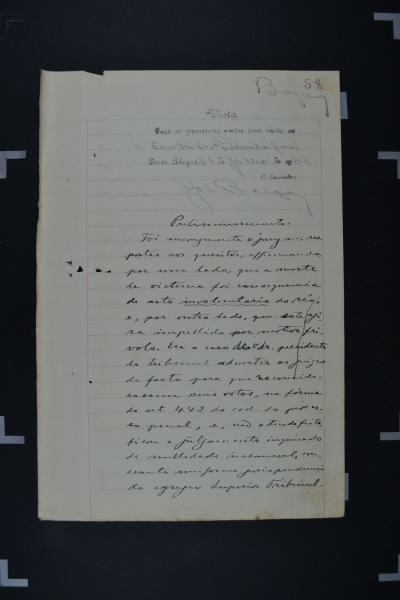 58
Borges
Vista
Faço os presentes autos com vista ao
Porto Alegre, 12 Julho de
O Escrivão
Preliminarmente:
Foi incongruente o jury nas res-
postas aos quesitos, affirmando,
por um lado, que a morte
da victima foi consequencia
de acto involuntario do réo,
e, por outro lado, que este agi-
ra impellido por motivo fri-
volo. Era o caso do Dr. presidente
do tribunal advertir os juizes
de facto para que reconside-
rassem seus votos, na fórma
do art. 442 do cod. do proces-
so penal, e, não o tendo feito,
ficou o julgamento inquinado
de nullidade insanavel, con-
soante uniforme jurisprudencia
do egregio Superior Tribunal.